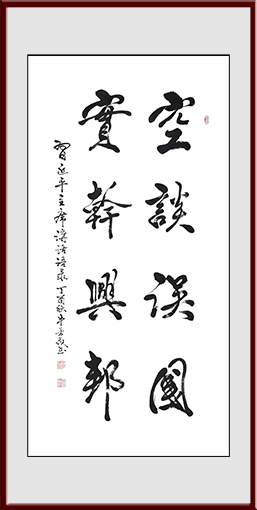 空談误國
實幹興邦
習近平主席講话语录 丁酉秋